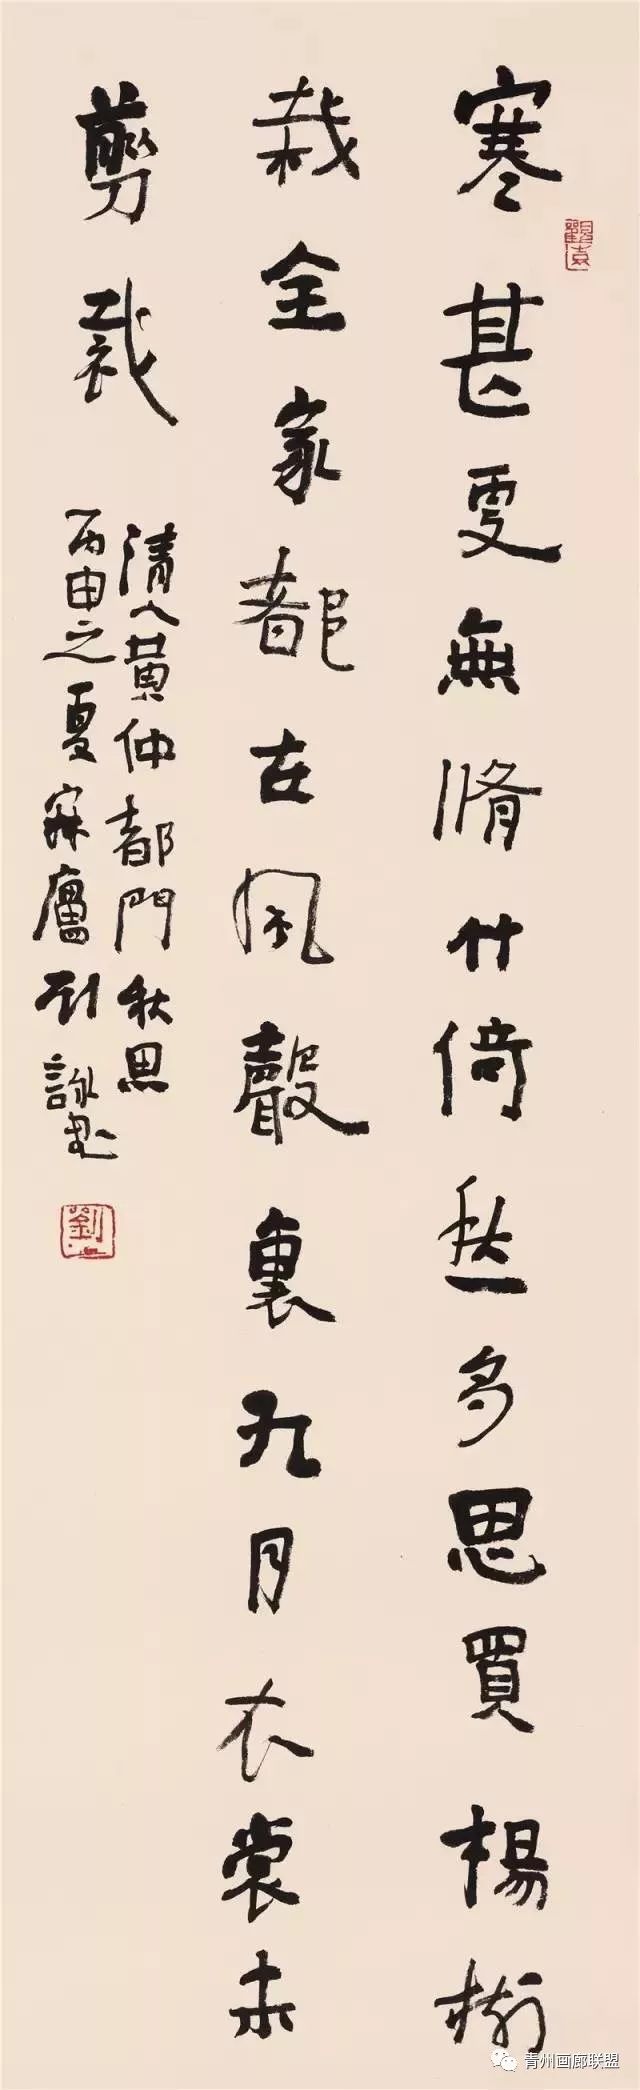 寒甚更無脩竹倚愁多思買楊樹
栽全家都在風聲裏九月衣裳未
剪裁
清人黃仲都門秋思
丙申之夏寐廬劉詠書
青州画廊联盟